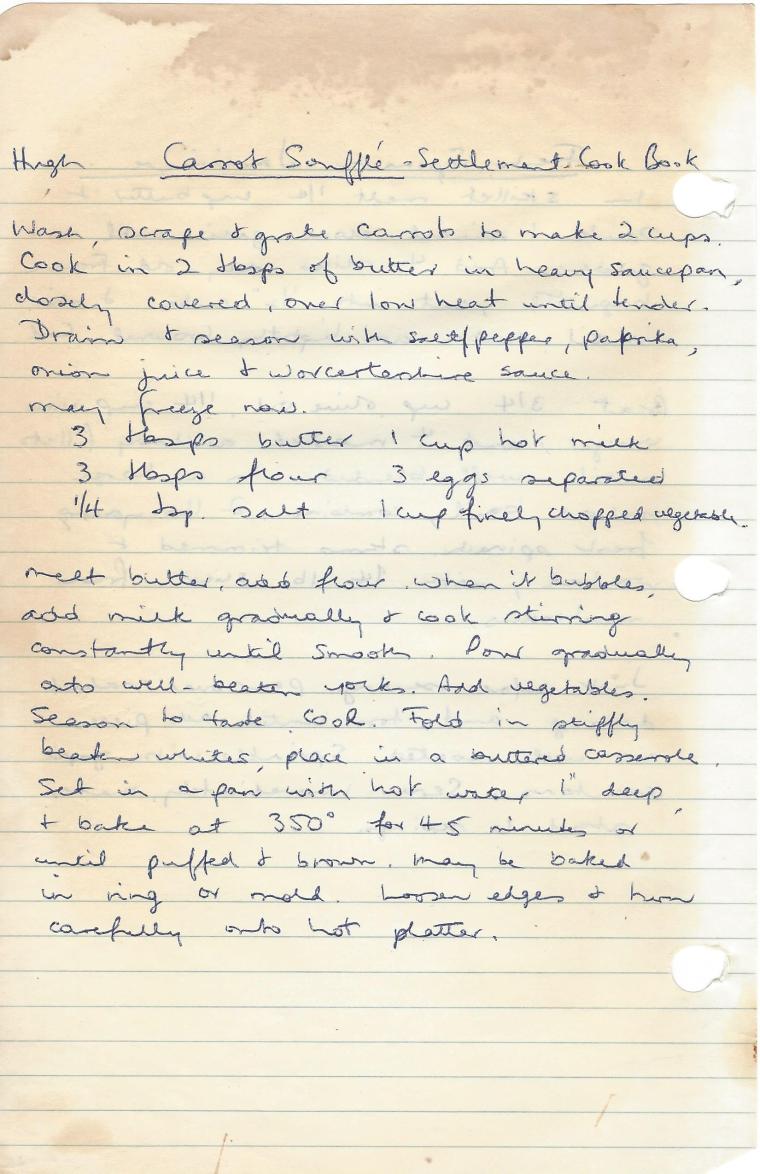 Hugh Carrot Soufflé - Settlement Cook Book
Wash, scrape & grate carrots to make 2 cups.
Cook in 2 tbsps of butter in heavy saucepan,
closely covered, over low heat until tender.
Drain & season with salt/pepper, paprika,
onion juice & worcertershire sauce.
may freeze now.
3 tbsps butter 1 cup hot milk
3 tbsps flour 3 eggs separated
1/4 tsp. salt 1 cup finely chopped vegetable.
melt butter, add flour. when it bubbles,
add milk gradually & cook stirring
constantly until smooth. Pour gradually
onto well-beaten yolks. Add vegetables.
Season to taste. Cool. Fold in stiffly
beaten whites, place in a buttered casserole.
Set in a pan with hot water 1" deep,
& bake at 350° for 45 minutes or
until puffed & brown. may be baked
in ring or mold. Loosen edges & turn
carefully onto hot platter.